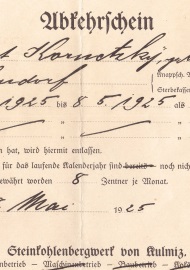 Abkehrschein
Kornetzky,
Knappsch.
dorf
Sterbekassen
1925 bis 8/5. 1925 als
" "
" "
en hat, wird hiermit entlassen.
für das laufende Kalenderjahr sind bereits noch nich
ewährt worden 8 Zentner je Monat.
Mai 1925
Steinkohlenbergwerk von Kulmiz,
nbetrieb - Maschinenbetrieb - Baubetrieb - Kok